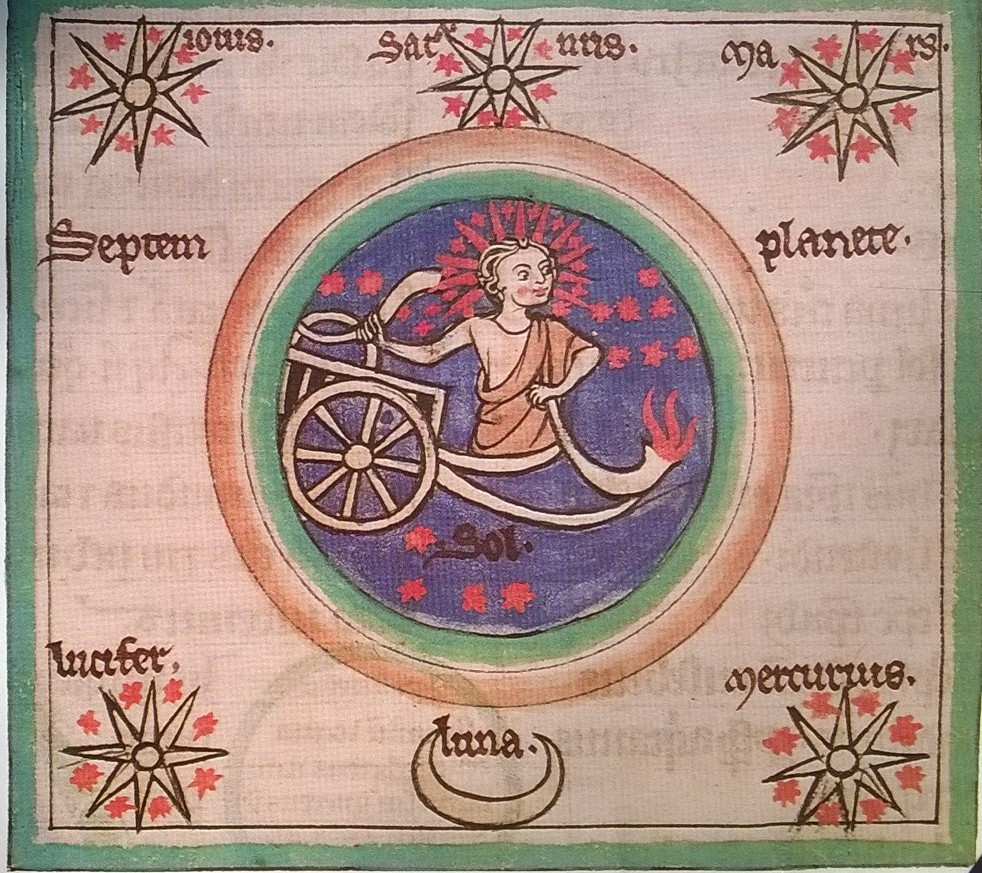 iouis.
Sat nus.
Ma rs.
Septem
planete.
Sol.
lucifer.
Mercurius.
luna.